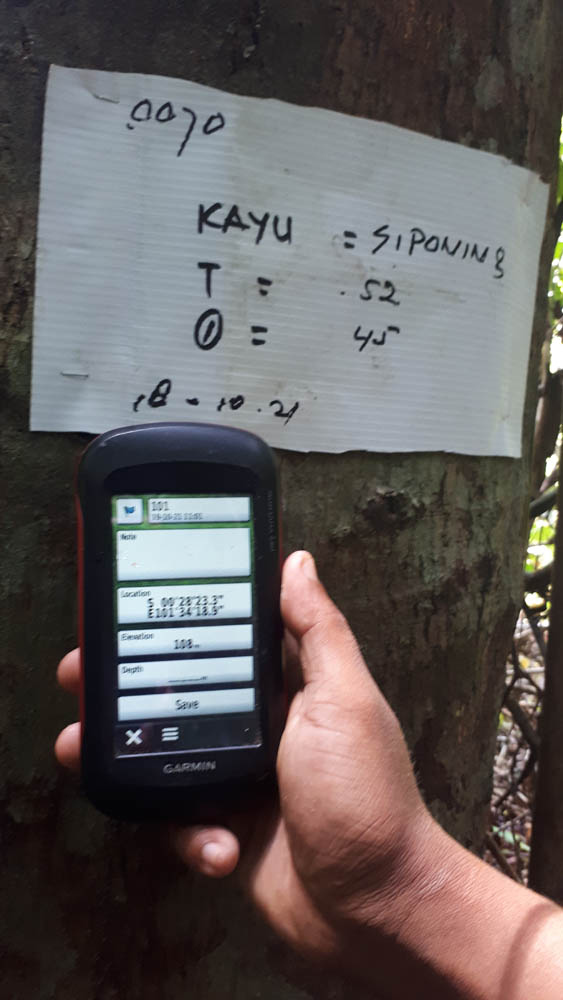 0070
KAYU = SIPONING
T = 52
Ⓘ = 45
18 - 10 . 21
101
Note
Location
S 00°28'23.3"
E101°34'18.9"
Elevation
108 m
Depth
Save
GARMIN